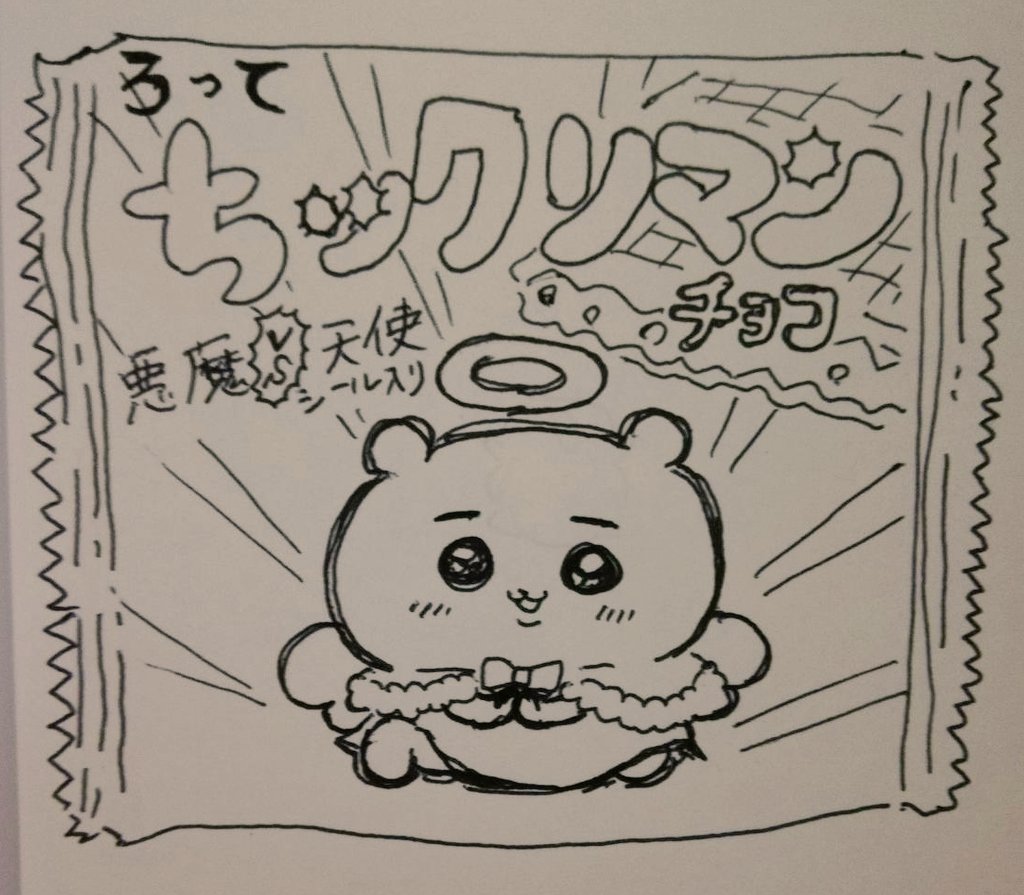 ろって
ちックリマン
チョコ
悪魔VS天使
シール入り